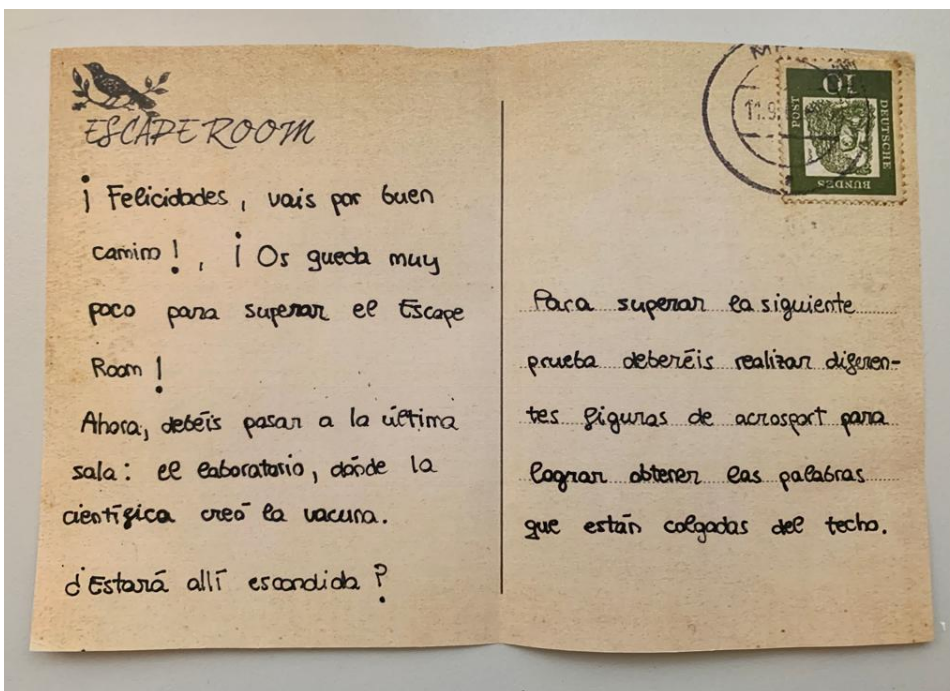 ESCAPE ROOM
¡ Felicidades, vais por buen
camino !, ¡ Os queda muy
poco para superar el Escape
Room !
Ahora, debéis pasar a la última
sala: el laboratorio, dónde la
científica creó la vacuna.
¿Estará allí escondida ?
11.9.
10
DEUTSCHE
BUNDES
POST
Para superar la siguiente
prueba deberéis realizar diferen-
tes figuras de acrosport para
lograr obtener las palabras
que están colgadas del techo.